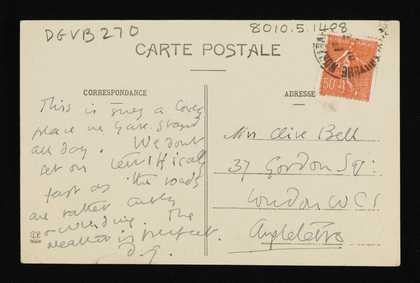 DGVB270
8010.5.1498
CARTE POSTALE
CORRESPONDANCE
ADRESSE
This is such a lovely
place we have stayed
all day. We don't
get on terrifically
fast as the roads
are rather curly
& winding. The
weather is perfect.
D.G.
50c
Mrs Clive Bell
37 Gordon Sq:
London WC1
Angleterre